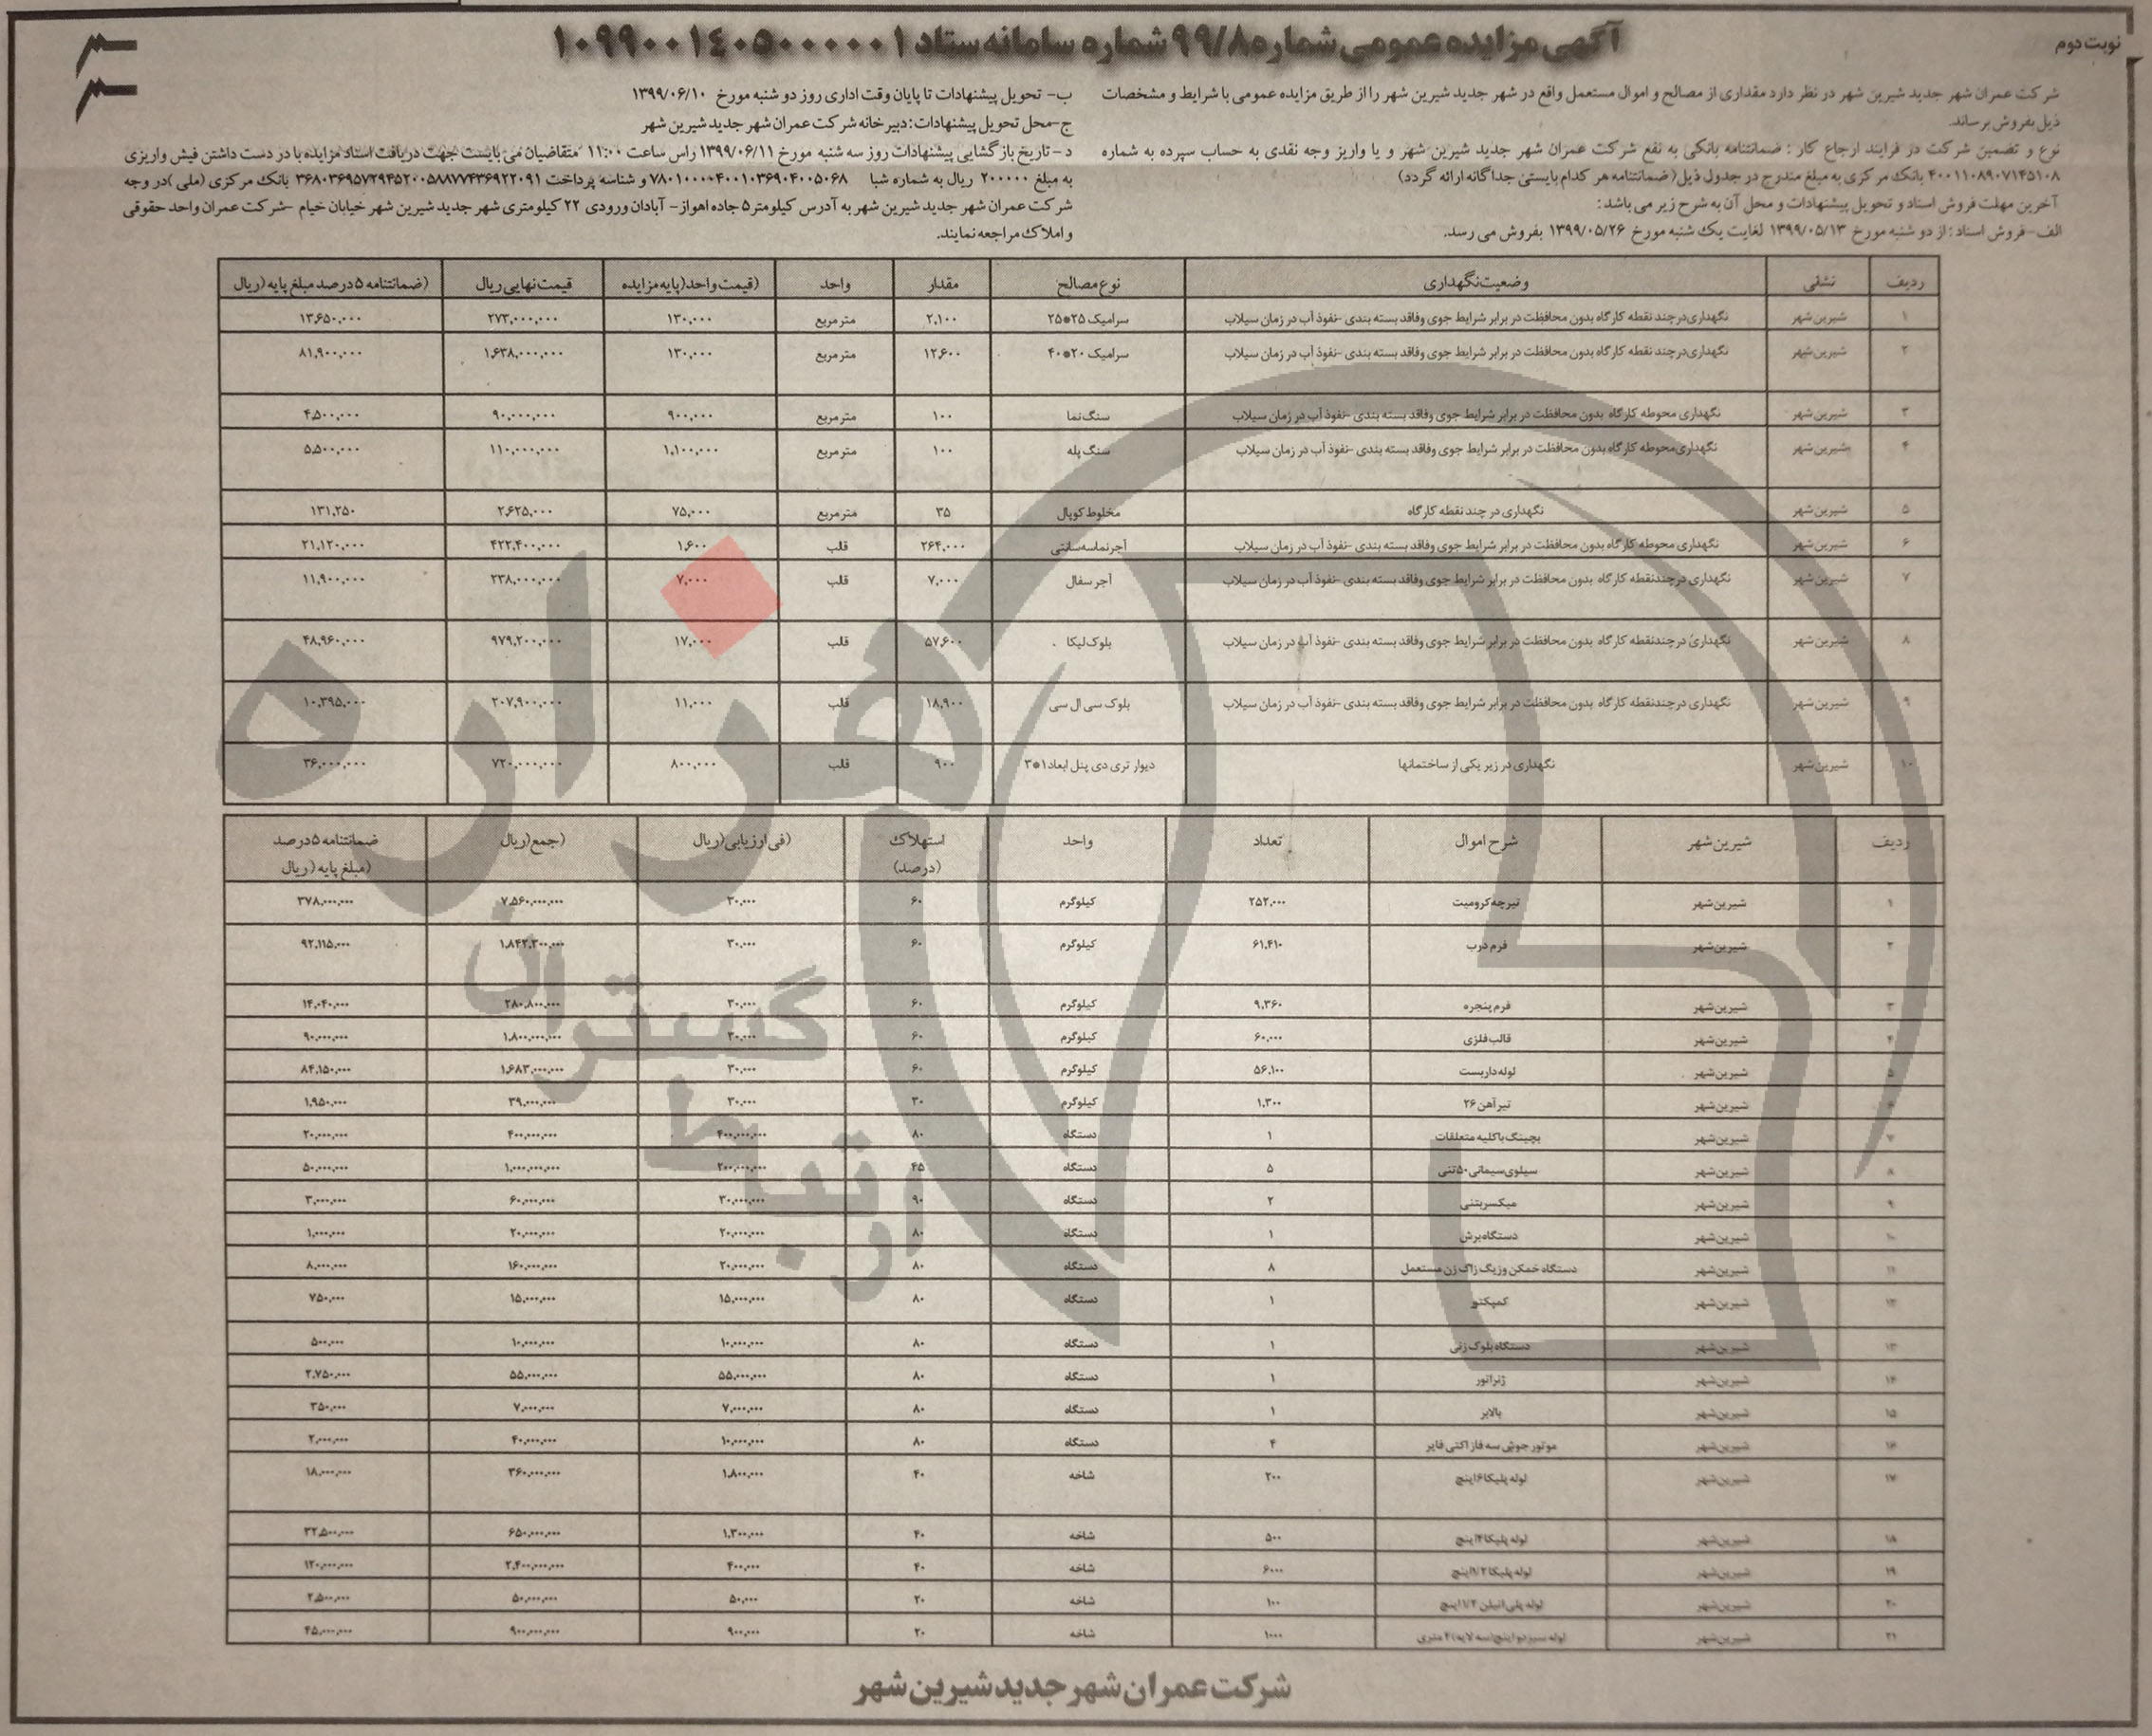 نوبت دوم
آگهی مزایده عمومی شماره ۹۹/۸ شماره سامانه ستاد ۱۰۹۹۰۰۱۴۰۵۰۰۰۰۰۱
شرکت عمران شهر جدید شیرین شهر در نظر دارد مقداری از مصالح و اموال مستعمل واقع در شهر جدید شیرین شهر را از طریق مزایده عمومی با شرایط و مشخصات
ذیل بفروش برساند.
نوع و تضمین شرکت در فرایند ارجاع کار : ضمانتنامه بانکی به نفع شرکت عمران شهر جدید شیرین شهر و یا واریز وجه نقدی به حساب سپرده به شماره
۴۰۰۱۱۰۸۹۰۷۱۴۵۱۰۸ بانک مرکزی به مبلغ مندرج در جدول ذیل( ضمانتنامه هر کدام بایستی جداگانه ارائه گردد)
آخرین مهلت فروش اسناد و تحویل پیشنهادات و محل آن به شرح زیر می باشد:
الف-فروش اسناد : از دو شنبه مورخ ۱۳۹۹/۰۵/۱۳ لغایت یک شنبه مورخ ۱۳۹۹/۰۵/۲۶ بفروش می رسد.
ب- تحویل پیشنهادات تا پایان وقت اداری روز دو شنبه مورخ ۱۳۹۹/۰۶/۱۰
ج-محل تحویل پیشنهادات: دبیرخانه شرکت عمران شهر جدید شیرین شهر
د - تاریخ بازگشایی پیشنهادات روز سه شنبه مورخ ۱۳۹۹/۰۶/۱۱ راس ساعت ۱۱:۰۰ متقاضیان می بایست جهت دریافت اسناد مزایده با در دست داشتن فیش واریزی
به مبلغ ۲۰۰۰۰۰ ریال به شماره شبا ۷۸۰۱۰۰۰۰۴۰۰۱۰۳۶۹۰۴۰۰۵۰۶۸ و شناسه پرداخت ۳۶۸۰۳۶۹۵۷۲۹۴۵۲۰۰۵۸۸۷۷۴۳۶۹۲۲۰۹۱ بانک مرکزی (ملی )در وجه
شرکت عمران شهر جدید شیرین شهر به آدرس کیلومتر ۵ جاده اهواز- آبادان ورودی ۲۲ کیلومتری شهر جدید شیرین شهر خیابان خیام -شرکت عمران واحد حقوقی
و املاک مراجعه نمایند.
ردیف نشانی وضعیت نگهداری نوع مصالح مقدار واحد (قیمت واحد(پایه مزایده قیمت نهایی ریال (ضمانتنامه ۵ درصد مبلغ پایه (ریال
۱ شیرین شهر نگهداری در چند نقطه کارگاه بدون محافظت در برابر شرایط جوی و فاقد بسته بندی -نفوذ آب در زمان سیلاب سرامیک ۲۵*۲۵ ۲,۱۰۰ متر مربع ۱۳۰,۰۰۰ ۲۷۳,۰۰۰,۰۰۰ ۱۳,۶۵۰,۰۰۰
۲ شیرین شهر نگهداری در چند نقطه کارگاه بدون محافظت در برابر شرایط جوی و فاقد بسته بندی -نفوذ آب در زمان سیلاب سرامیک ۲۰*۴۰ ۱۲,۶۰۰ متر مربع ۱۳۰,۰۰۰ ۱,۶۳۸,۰۰۰,۰۰۰ ۸۱,۹۰۰,۰۰۰
۳ شیرین شهر نگهداری محوطه کارگاه بدون محافظت در برابر شرایط جوی و فاقد بسته بندی -نفوذ آب در زمان سیلاب سنگ نما ۱۰۰ متر مربع ۹۰۰,۰۰۰ ۹۰,۰۰۰,۰۰۰ ۴,۵۰۰,۰۰۰
۴ شیرین شهر نگهداری محوطه کارگاه بدون محافظت در برابر شرایط جوی و فاقد بسته بندی -نفوذ آب در زمان سیلاب سنگ پله ۱۰۰ متر مربع ۱,۱۰۰,۰۰۰ ۱۱۰,۰۰۰,۰۰۰ ۵,۵۰۰,۰۰۰
۵ شیرین شهر نگهداری در چند نقطه کارگاه مخلوط کوپال ۳۵ متر مربع ۷۵,۰۰۰ ۲,۶۲۵,۰۰۰ ۱۳۱,۲۵۰
۶ شیرین شهر نگهداری محوطه کارگاه بدون محافظت در برابر شرایط جوی و فاقد بسته بندی -نفوذ آب در زمان سیلاب آجرنما سه سانتی ۲۶۴,۰۰۰ قلب ۱,۶۰۰ ۴۲۲,۴۰۰,۰۰۰ ۲۱,۱۲۰,۰۰۰
۷ شیرین شهر نگهداری در چندنقطه کارگاه بدون محافظت در برابر شرایط جوی و فاقد بسته بندی -نفوذ آب در زمان سیلاب آجر سفال ۷,۰۰۰ قلب ۷,۰۰۰ ۲۳۸,۰۰۰,۰۰۰ ۱۱,۹۰۰,۰۰۰
۸ شیرین شهر نگهداری در چندنقطه کارگاه بدون محافظت در برابر شرایط جوی و فاقد بسته بندی -نفوذ آب در زمان سیلاب بلوک لیکا ۵۷,۶۰۰ قلب ۱۷,۰۰۰ ۹۷۹,۲۰۰,۰۰۰ ۴۸,۹۶۰,۰۰۰
۹ شیرین شهر نگهداری در چندنقطه کارگاه بدون محافظت در برابر شرایط جوی و فاقد بسته بندی -نفوذ آب در زمان سیلاب بلوک سی ال سی ۱۸,۹۰۰ قلب ۱۱,۰۰۰ ۲۰۷,۹۰۰,۰۰۰ ۱۰,۳۹۵,۰۰۰
۱۰ شیرین شهر نگهداری در زیر یکی از ساختمانها دیوار تری دی پنل ابعاد ۱*۳ ۹۰۰ قلب ۸۰۰,۰۰۰ ۷۲۰,۰۰۰,۰۰۰ ۳۶,۰۰۰,۰۰۰
ردیف شیرین شهر شرح اموال تعداد واحد استهلاک (فی ارزیابی(ریال (جمع(ریال ضمانتنامه ۵ درصد
(درصد) (مبلغ پایه (ریال
۱ شیرین شهر تیرچه کرومیت ۲۵۲,۰۰۰ کیلوگرم ۶۰ ۳۰,۰۰۰ ۷,۵۶۰,۰۰۰,۰۰۰ ۳۷۸,۰۰۰,۰۰۰
۲ شیرین شهر فرم درب ۶۱,۴۱۰ کیلوگرم ۶۰ ۳۰,۰۰۰ ۱,۸۴۲,۳۰۰,۰۰۰ ۹۲,۱۱۵,۰۰۰
۳ شیرین شهر فرم پنجره ۹,۳۶۰ کیلوگرم ۶۰ ۳۰,۰۰۰ ۲۸۰,۸۰۰,۰۰۰ ۱۴,۰۴۰,۰۰۰
۴ شیرین شهر قالب فلزی ۶۰,۰۰۰ کیلوگرم ۶۰ ۳۰,۰۰۰ ۱,۸۰۰,۰۰۰,۰۰۰ ۹۰,۰۰۰,۰۰۰
۵ شیرین شهر لوله داربست ۵۶,۱۰۰ کیلوگرم ۶۰ ۳۰,۰۰۰ ۱,۶۸۳,۰۰۰,۰۰۰ ۸۴,۱۵۰,۰۰۰
۶ شیرین شهر تیرآهن ۲۶ ۱,۳۰۰ کیلوگرم ۳۰ ۳۰,۰۰۰ ۳۹,۰۰۰,۰۰۰ ۱,۹۵۰,۰۰۰
۷ شیرین شهر بچینگ با کلیه متعلقات ۱ دستگاه ۸۰ ۴۰۰,۰۰۰,۰۰۰ ۴۰۰,۰۰۰,۰۰۰ ۲۰,۰۰۰,۰۰۰
۸ شیرین شهر سیلوی سیمانی ۵۰تنی ۵ دستگاه ۴۵ ۲۰۰,۰۰۰,۰۰۰ ۱,۰۰۰,۰۰۰,۰۰۰ ۵۰,۰۰۰,۰۰۰
۹ شیرین شهر میکسربتنی ۲ دستگاه ۹۰ ۳۰,۰۰۰,۰۰۰ ۶۰,۰۰۰,۰۰۰ ۳,۰۰۰,۰۰۰
۱۰ شیرین شهر دستگاه برش ۱ دستگاه ۸۰ ۲۰,۰۰۰,۰۰۰ ۲۰,۰۰۰,۰۰۰ ۱,۰۰۰,۰۰۰
۱۱ شیرین شهر دستگاه خمکن وزیگ زاگ زن مستعمل ۸ دستگاه ۸۰ ۲۰,۰۰۰,۰۰۰ ۱۶۰,۰۰۰,۰۰۰ ۸,۰۰۰,۰۰۰
۱۲ شیرین شهر کمپکتور ۱ دستگاه ۸۰ ۱۵,۰۰۰,۰۰۰ ۱۵,۰۰۰,۰۰۰ ۷۵۰,۰۰۰
۱۳ شیرین شهر دستگاه بلوک زنی ۱ دستگاه ۸۰ ۱۰,۰۰۰,۰۰۰ ۱۰,۰۰۰,۰۰۰ ۵۰۰,۰۰۰
۱۴ شیرین شهر ژنراتور ۱ دستگاه ۸۰ ۵۵,۰۰۰,۰۰۰ ۵۵,۰۰۰,۰۰۰ ۲,۷۵۰,۰۰۰
۱۵ شیرین شهر بالابر ۱ دستگاه ۸۰ ۷,۰۰۰,۰۰۰ ۷,۰۰۰,۰۰۰ ۳۵۰,۰۰۰
۱۶ شیرین شهر موتور جوش سه فاز اکتی فایر ۴ دستگاه ۸۰ ۱۰,۰۰۰,۰۰۰ ۴۰,۰۰۰,۰۰۰ ۲,۰۰۰,۰۰۰
۱۷ شیرین شهر لوله پلیکا ۶اینچ ۲۰۰ شاخه ۴۰ ۱,۸۰۰,۰۰۰ ۳۶۰,۰۰۰,۰۰۰ ۱۸,۰۰۰,۰۰۰
۱۸ شیرین شهر لوله پلیکا ۴اینچ ۵۰۰ شاخه ۴۰ ۱,۳۰۰,۰۰۰ ۶۵۰,۰۰۰,۰۰۰ ۳۲,۵۰۰,۰۰۰
۱۹ شیرین شهر لوله پلیکا ۱/۲اینچ ۶۰۰۰ شاخه ۴۰ ۴۰۰,۰۰۰ ۲,۴۰۰,۰۰۰,۰۰۰ ۱۲۰,۰۰۰,۰۰۰
۲۰ شیرین شهر لوله پلی اتیلن ۱/۲ اینچ ۱۰۰ شاخه ۲۰ ۵۰,۰۰۰ ۵۰,۰۰۰,۰۰۰ ۲,۵۰۰,۰۰۰
۲۱ شیرین شهر لوله سبز دو اینچ(سه لایه) ۴ متری ۱۰۰۰ شاخه ۲۰ ۹۰۰,۰۰۰ ۹۰۰,۰۰۰,۰۰۰ ۴۵,۰۰۰,۰۰۰
شرکت عمران شهر جدید شیرین شهر
هزاره
گستران
ارتباط